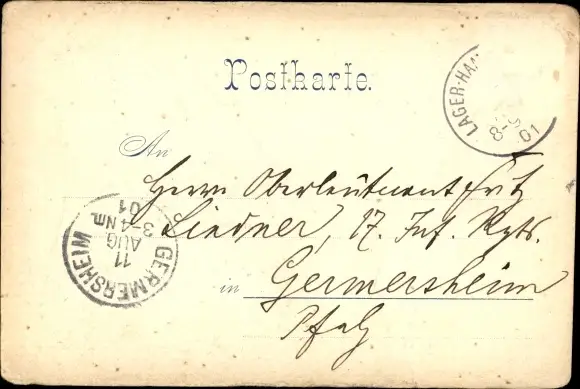 Postkarte.
LAGER-HA
8-9
01
An
Herrn Oberleutnant Fritz
Lindner, 17. Inf. Rgts.
GERMERSHEIM
11
AUG
3-4 Nm.
01
in Germersheim
Pfalz